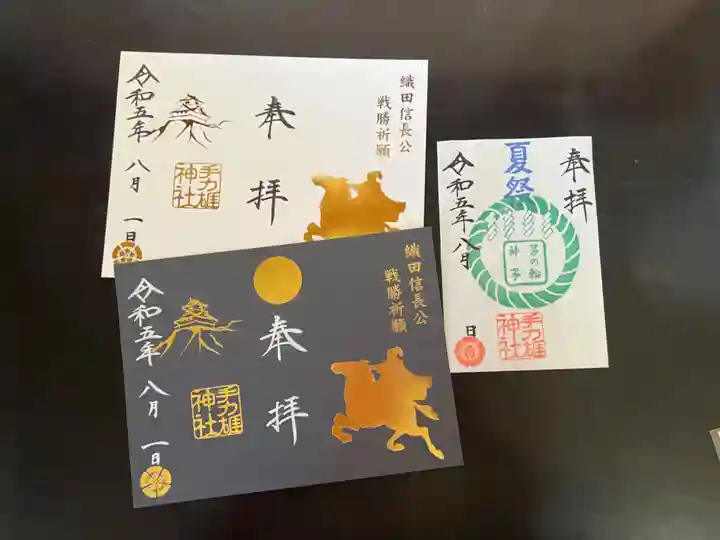 織田信長公
戦勝祈願
奉拝
手力雄
神社
令和五年 八月 一日
織田信長公
戦勝祈願
奉拝
手力雄
神社
令和五年 八月 一日
奉拝
夏祭
茅の輪
神事
手力雄
神社
令和五年八月
日